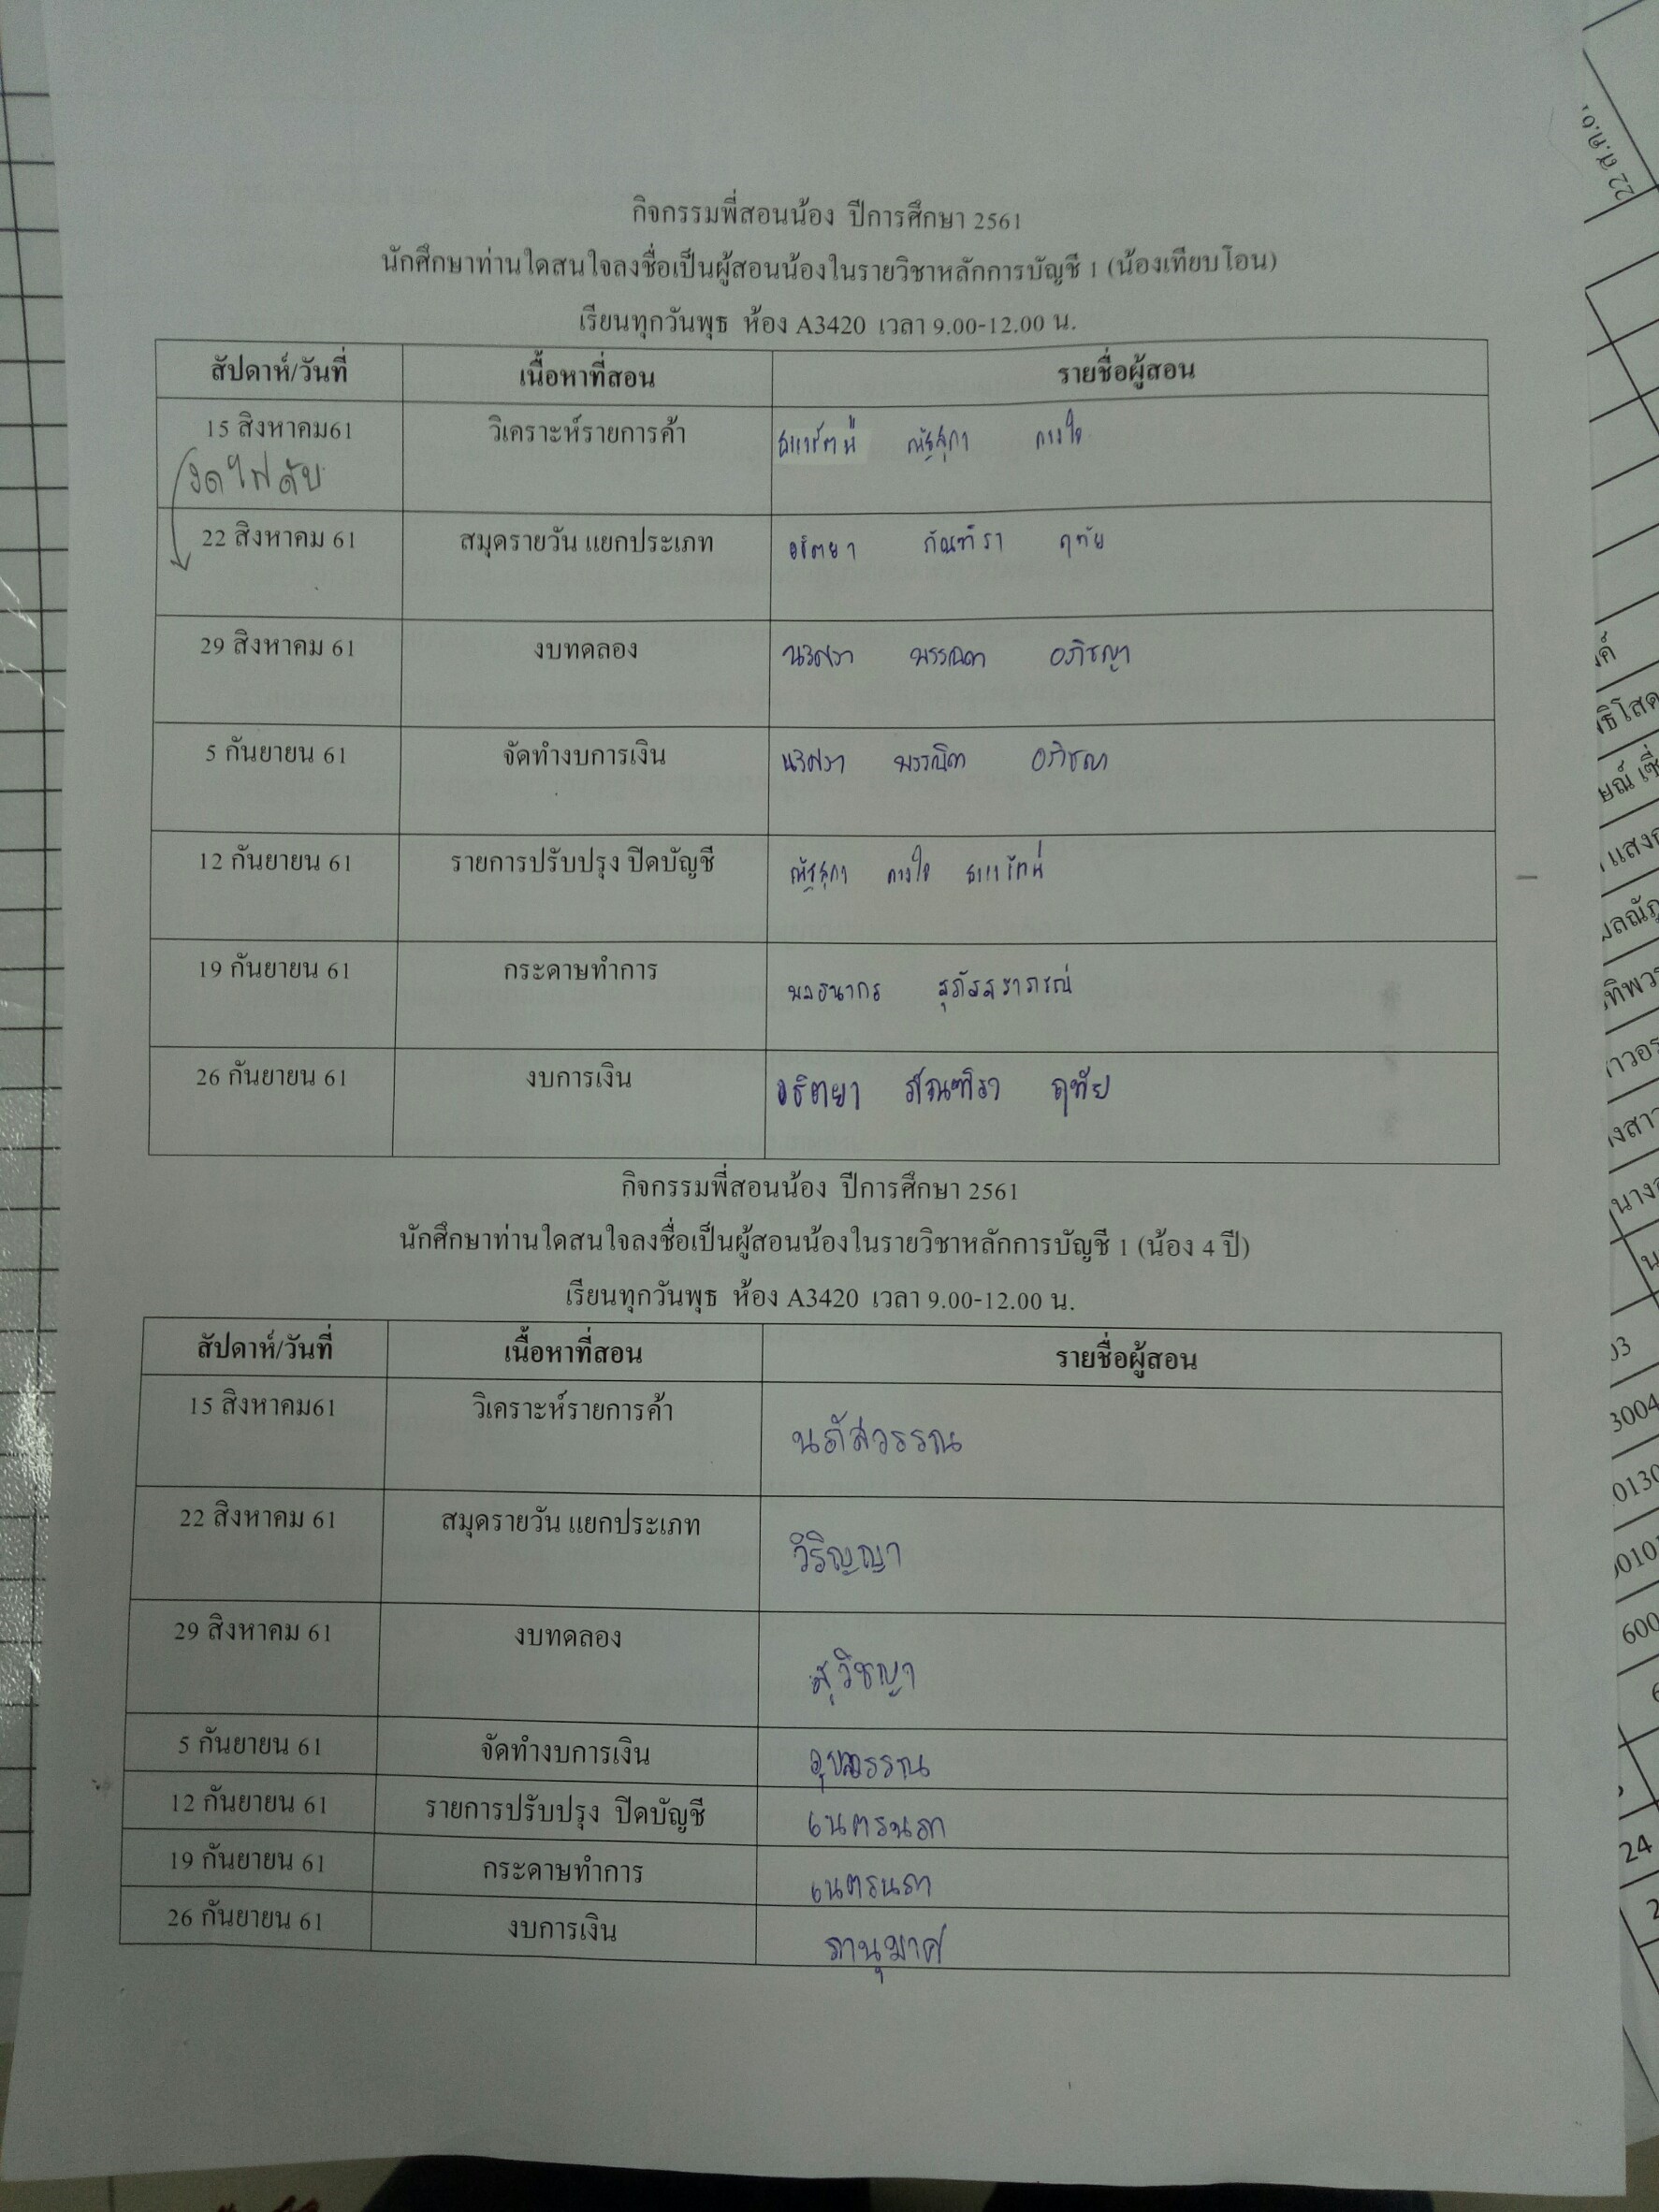 กิจกรรมพี่สอนน้อง ปีการศึกษา 2561
นักศึกษาท่านใดสนใจลงชื่อเป็นผู้สอนน้องในรายวิชาหลักการบัญชี 1 (น้องเทียบโอน)
เรียนทุกวันพุธ ห้อง A3420 เวลา 9.00-12.00 น.
สัปดาห์/วันที่ เนื้อหาที่สอน รายชื่อผู้สอน
15 สิงหาคม61 วิเคราะห์รายการค้า ธนารัตน์ ณัฐสุภา ดวงใจ
งดไฟดับ
22 สิงหาคม 61 สมุดรายวัน แยกประเภท อธิตยา ภัณฑิรา ฤทัย
29 สิงหาคม 61 งบทดลอง พรรณิดา อภิชญา
5 กันยายน 61 จัดทำงบการเงิน พรรณิดา อภิชญา
12 กันยายน 61 รายการปรับปรุง ปิดบัญชี ณัฐสุภา ดวงใจ ธนารัตน์
19 กันยายน 61 กระดาษทำการ พลธนากร สุภัสสราภรณ์
26 กันยายน 61 งบการเงิน อธิตยา ภัณฑิรา ฤทัย
กิจกรรมพี่สอนน้อง ปีการศึกษา 2561
นักศึกษาท่านใดสนใจลงชื่อเป็นผู้สอนน้องในรายวิชาหลักการบัญชี 1 (น้อง 4 ปี)
เรียนทุกวันพุธ ห้อง A3420 เวลา 9.00-12.00 น.
สัปดาห์/วันที่ เนื้อหาที่สอน รายชื่อผู้สอน
15 สิงหาคม61 วิเคราะห์รายการค้า นภัสวรรณ
22 สิงหาคม 61 สมุดรายวัน แยกประเภท วิริญญา
29 สิงหาคม 61 งบทดลอง สุวิชญา
5 กันยายน 61 จัดทำงบการเงิน อุบลวรรณ
12 กันยายน 61 รายการปรับปรุง ปิดบัญชี เนตรนภา
19 กันยายน 61 กระดาษทำการ เนตรนภา
26 กันยายน 61 งบการเงิน ภานุมาศ